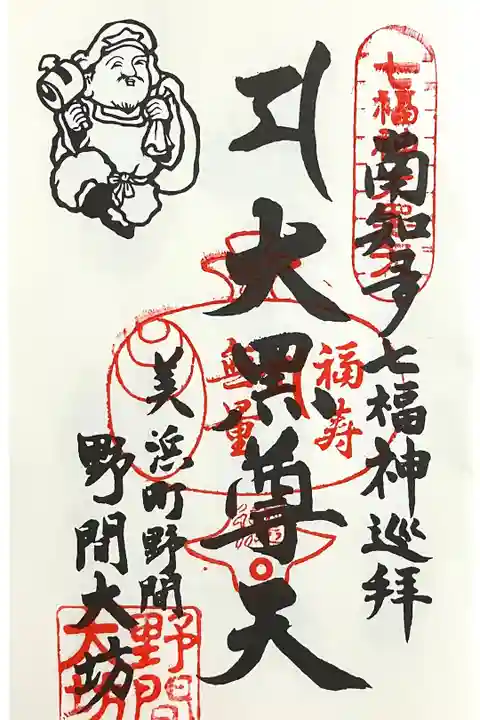 南知多七福神巡拝
七福
大黒尊天
福寿
無量
美浜町野間
野間大坊
野間
大坊